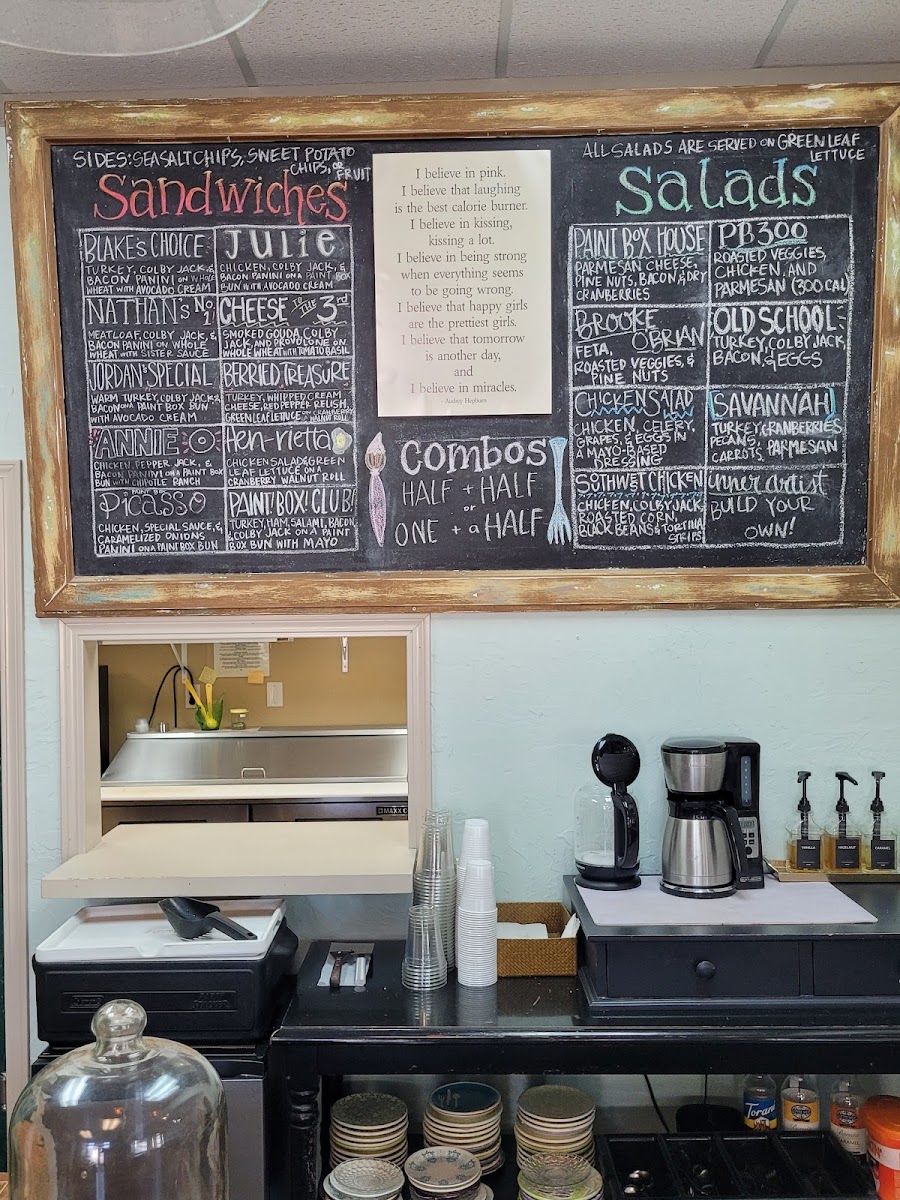 SIDES: SEA SALT CHIPS, SWEET POTATO
CHIPS, OR
FRUIT
Sandwiches
BLAKE'S CHOICE
TURKEY, COLBY JACK, &
BACON PANINI ON WHOLE
WHEAT WITH AVOCADO CREAM
Julie
CHICKEN, COLBY JACK, &
BACON PANINI ON A PAINT BOX
BUN WITH AVOCADO CREAM
NATHAN'S No 1
MEATLOAF, COLBY JACK, &
BACON PANINI ON WHOLE
WHEAT WITH SISTER SAUCE
CHEESE TO THE 3rd
SMOKED GOUDA, COLBY
JACK, AND PROVOLONE ON
WHOLE WHEAT WITH TOMATO BASIL
JORDAN'S SPECIAL
WARM TURKEY, COLBY JACK, &
BACON ON A PAINT BOX BUN
WITH AVOCADO CREAM
BERRIED TREASURE
TURKEY, WHIPPED CREAM
CHEESE, RED PEPPER RELISH,
GREEN LEAF LETTUCE ON CRANBERRY
WALNUT ROLL
ANNIE O
CHICKEN, PEPPER JACK, &
BACON PANINI ON A PAINT BOX
BUN WITH CHIPOTLE RANCH
Hen-rietta
CHICKEN SALAD & GREEN
LEAF LETTUCE ON A
CRANBERRY WALNUT ROLL
PAINT BOX
Picasso
CHICKEN, SPECIAL SAUCE, &
CARAMELIZED ONIONS
PANINI ON A PAINT BOX BUN
PAINT BOX CLUB
TURKEY, HAM, SALAMI, BACON,
& COLBY JACK ON A PAINT
BOX BUN WITH MAYO
I believe in pink.
I believe that laughing
is the best calorie burner.
I believe in kissing,
kissing a lot.
I believe in being strong
when everything seems
to be going wrong.
I believe that happy girls
are the prettiest girls.
I believe that tomorrow
is another day,
and
I believe in miracles.
- Audrey Hepburn
Combos
HALF + HALF
or
ONE + a HALF
ALL SALADS ARE SERVED ON GREEN LEAF
LETTUCE
Salads
PAINT BOX HOUSE
PARMESAN CHEESE,
PINE NUTS, BACON, & DRY
CRANBERRIES
PB300
ROASTED VEGGIES,
CHICKEN, AND
PARMESAN (300 CAL)
BROOKE
O'BRIAN
FETA,
ROASTED VEGGIES, &
PINE NUTS
OLD SCHOOL
TURKEY, COLBY JACK,
BACON, & EGGS
CHICKEN SALAD
CHICKEN, CELERY,
GRAPES, & EGGS IN
A MAYO-BASED
DRESSING
SAVANNAH
TURKEY, CRANBERRIES
PECANS,
CARROTS, PARMESAN
SOTHWEST CHICKEN
CHICKEN, COLBY JACK,
ROASTED CORN,
BLACK BEANS, & TORTILLA
STRIPS
inner artist
BUILD YOUR
OWN!
VANILLA
HAZELNUT
CARAMEL
Torani